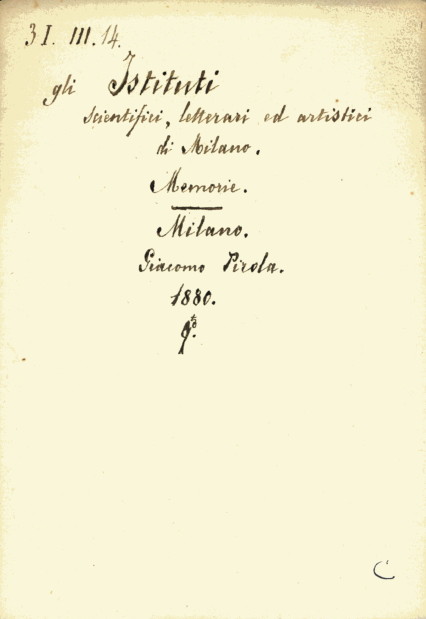 3 I. III. 14.
gli Istituti
scientifici, letterari ed artistici
di Milano.
Memorie.
Milano.
Giacomo Pirola.
1880.
C